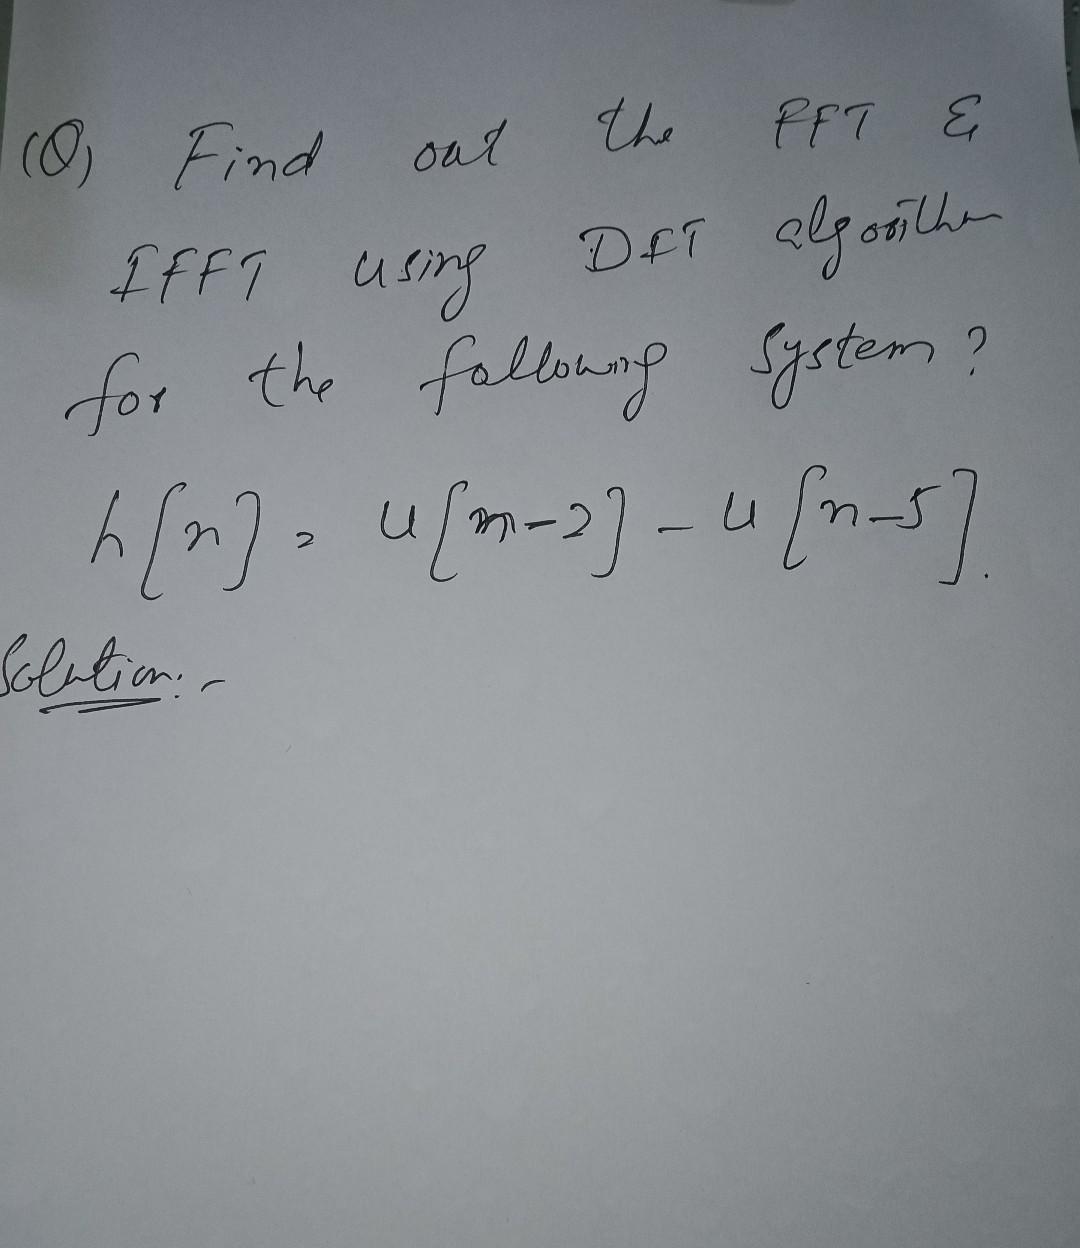 (Q) Find out the FFT &
IFFT using DFT algorithm
for the following system?
h[n] = u[n-2] - u[n-5].
Solution:-